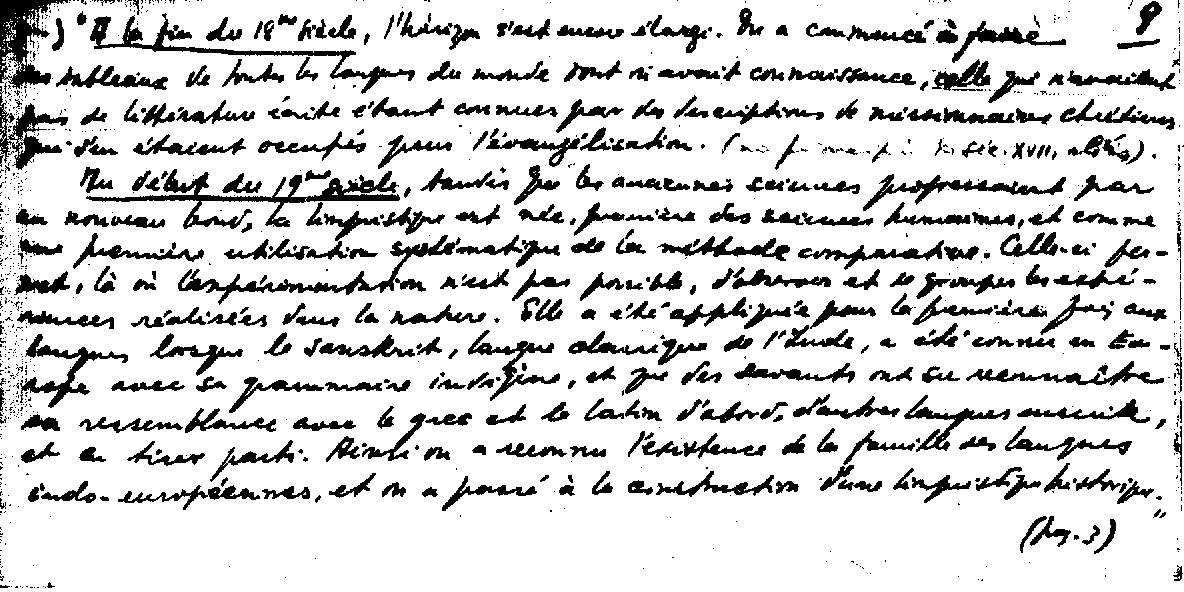 ) " A la fin du 18ème siècle, l'horizon s'est encore élargi. On a commencé à faire 8
des tableaux de toutes les langues du monde dont on avait connaissance, celles qui n'avaient
pas de littérature écrite étant connues par des descriptions de missionnaires chrétiens
qui s'en étaient occupés pour l'évangélisation. ( XVII, ).
Au début du 19ème siècle, tandis que les anciennes sciences progressaient par
un nouveau bond, la linguistique est née, première des sciences humaines, et comme
une première utilisation systématique de la méthode comparative. Celle-ci per-
met, là où l'expérimentation n'est pas possible, d'observer et de grouper les expéri-
mences réalisées dans la nature. Elle a été appliquée pour la première fois aux
langues lorsque le sanskrit, langue classique de l'Inde, a été connu en Eu-
rope avec sa grammaire indigène, et que des savants ont su reconnaître
sa ressemblance avec le grec et le latin d'abord, d'autres langues ensuite,
et en tirer parti. Ainsi on a reconnu l'existence de la famille des langues
indo-européennes, et on a passé à la construction d'une linguistique historique."
(pag. 3)